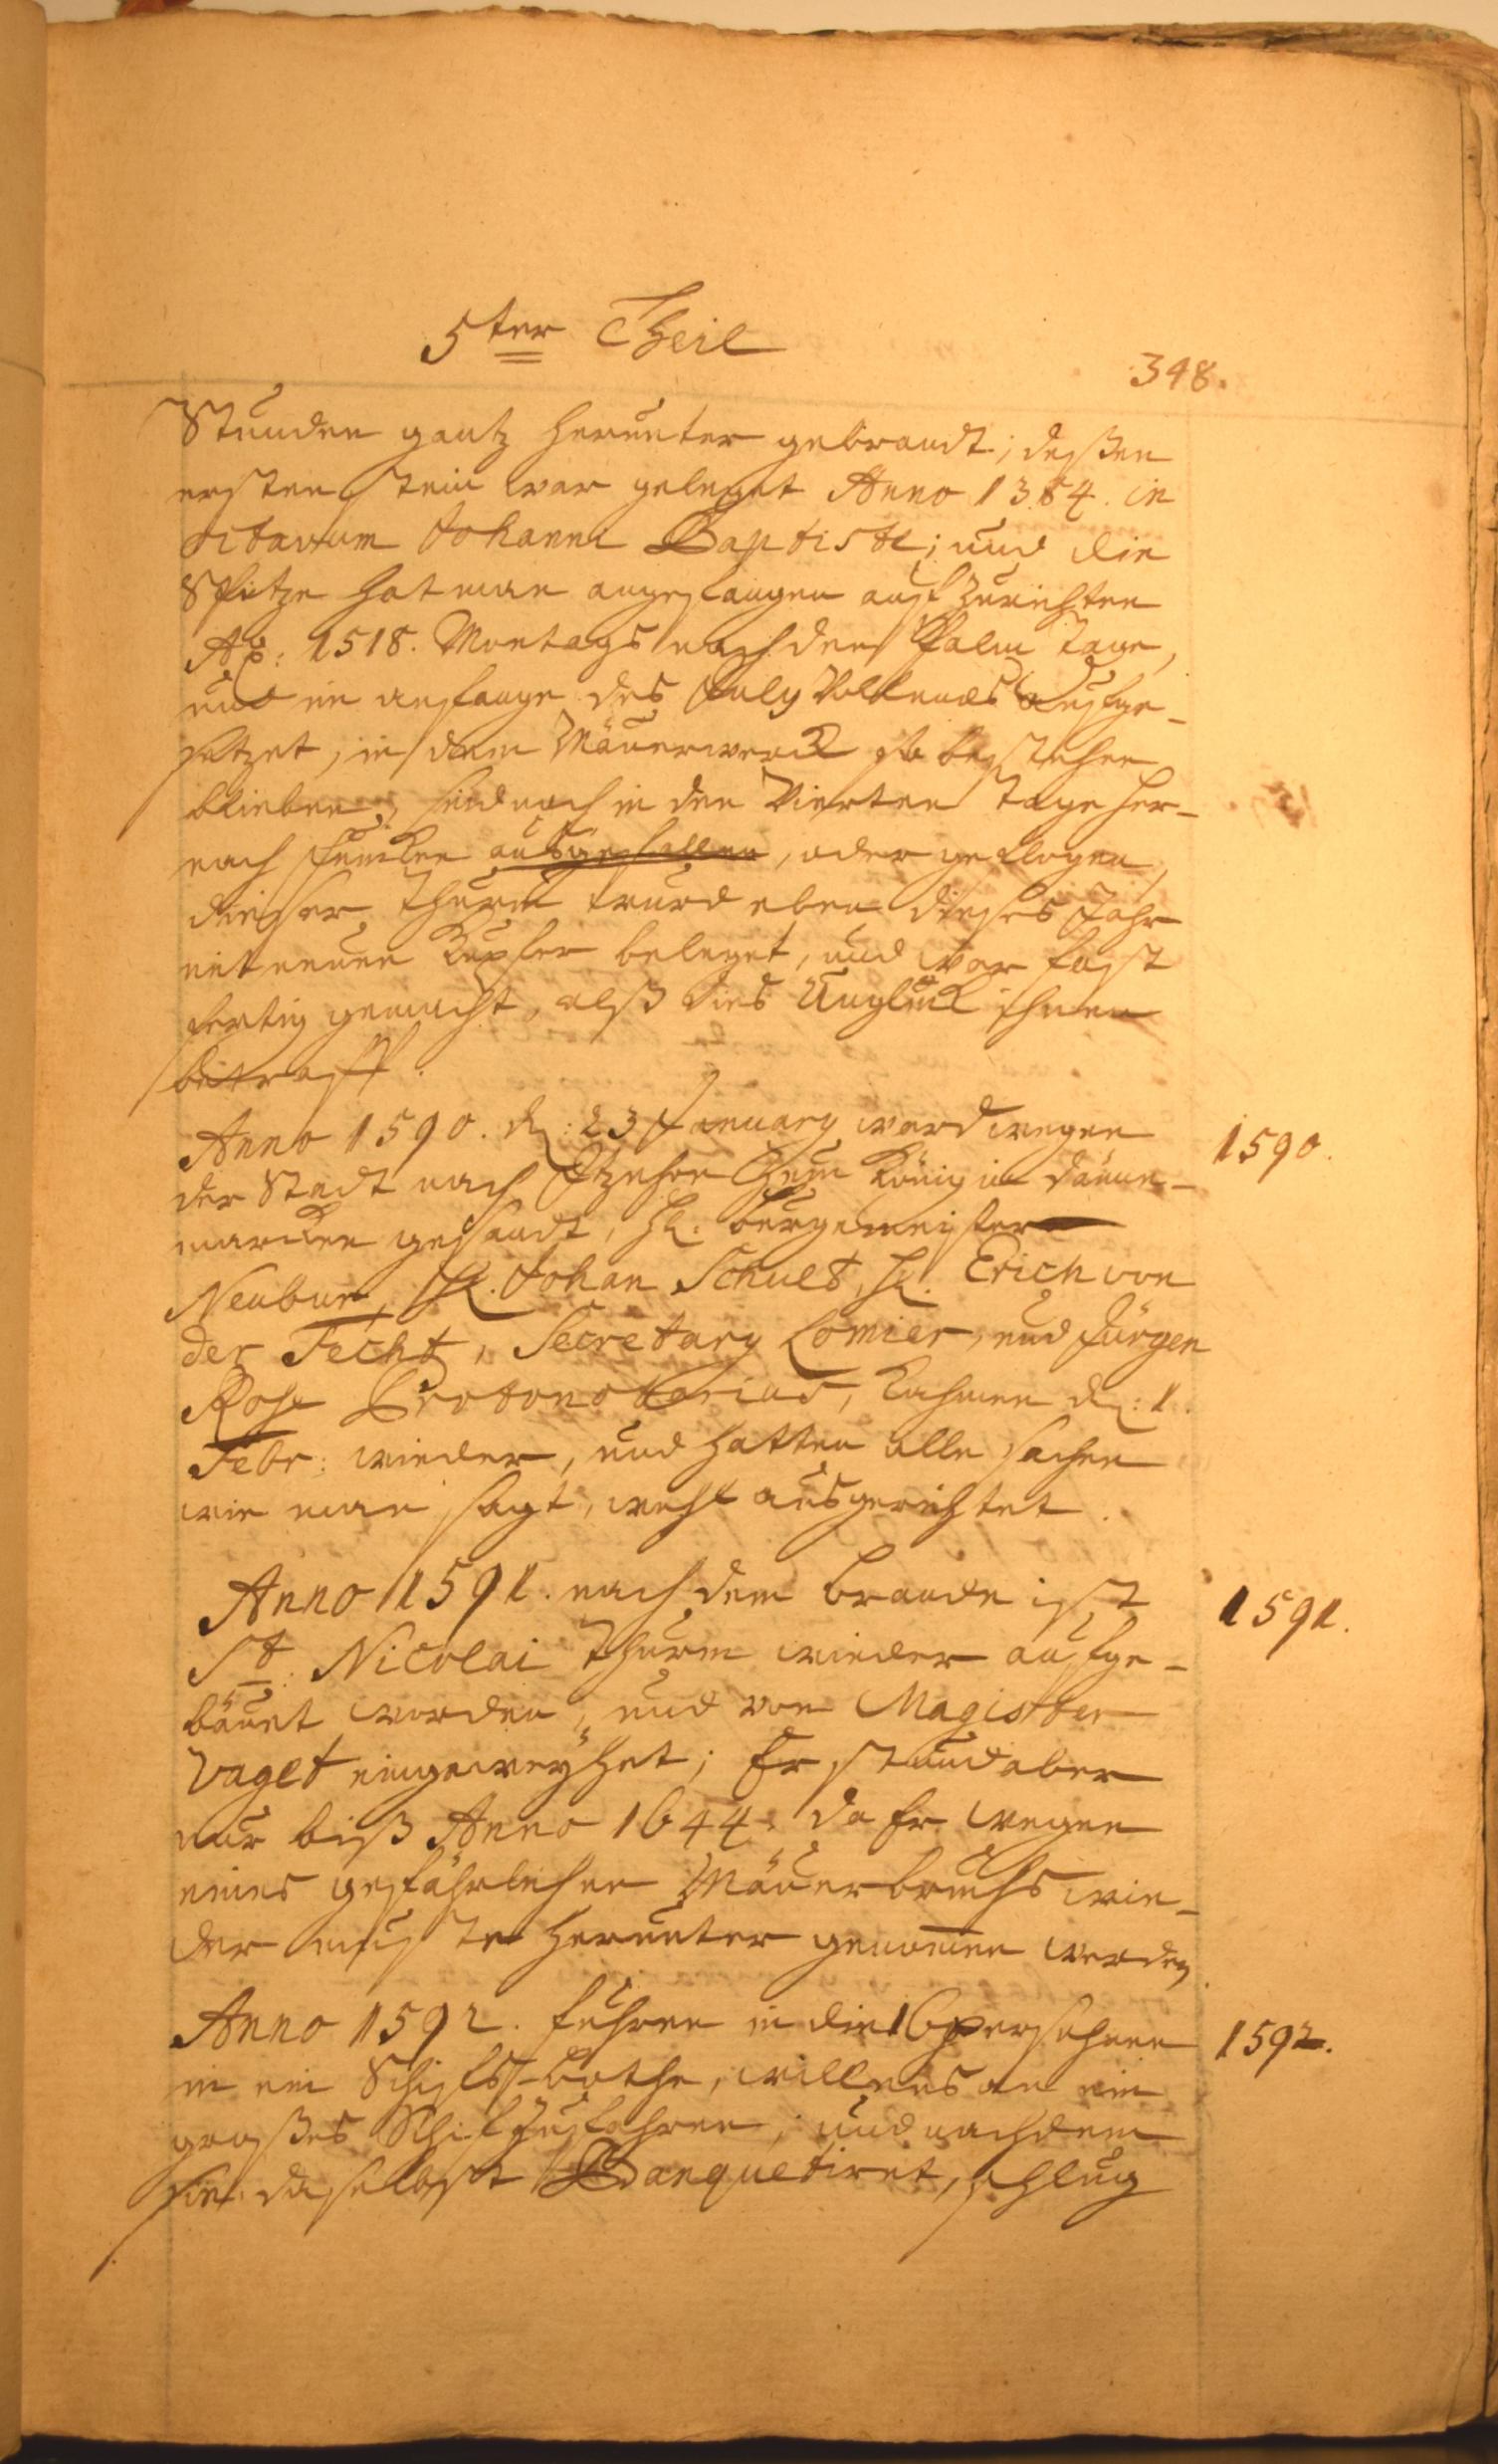 5ter Theil
348.
Stunden gantz herunter gebrandt; deßen
ersten stein war geleget Anno 1384. in
octavum Johanni Baptistæ; und die
Spitze hat man angefangen auf zurichten
Ao: 1518. Montags nach den Palm tage,
und im anfange des July Vollends aufge-
setzet, in dem Mäuerwerck so bestehen
blieben, sind noch in den Vierten tage her-
nach funcken ausgefallen, oder geflogen,
dieser thurm wurd eben dieses Jahr
mit neuen Kupfer beleget, und war fast
fertig gemacht, alß dies Unglück ihnen
betraff.
Anno 1590. d: 23 January ward wegen
der Stadt nach Itzehoe zum König in Dänne-
marcken gesandt, H: burgermeister
Neubur, H. Johan Schult, H. Erich von
der Fecht, Secretary Lomier, und Jürgen
Rose Protonotarius, kahmen d: 1.
Febr: wieder, und hatten alle sachen
wie man sagt, wohl ausgerichtet.
1590.
Anno 1591. nach dem brande ist
St: Nicolai thurm wieder aufge-
bäuet worden, und von Magister
Vaget eingeweyhet; Er stund aber
nur biß Anno 1644. da Er wegen
eines gefährlichen Mäuerbruchs wie-
der muste herunter genomen werden.
1591.
Anno 1592. fuhren in die 16 persohnen
in ein Schiffs-bothe, willens an ein
großes Schif zu fahren, und nachdem
sie daselbst Banquetiret, schlug
1592.